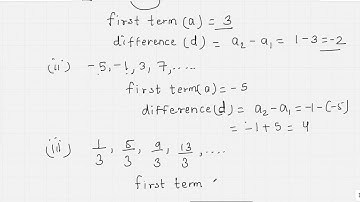 first term (a) = 3
difference (d) = a₂ - a₁ = 1-3 = -2
(ii) -5, -1, 3, 7, .....
first term(a) = -5
difference(d) = a₂ - a₁ = -1 - (-5)
= -1 + 5 = 4
(iii) 1/3, 5/3, 9/3, 13/3, ....
first term